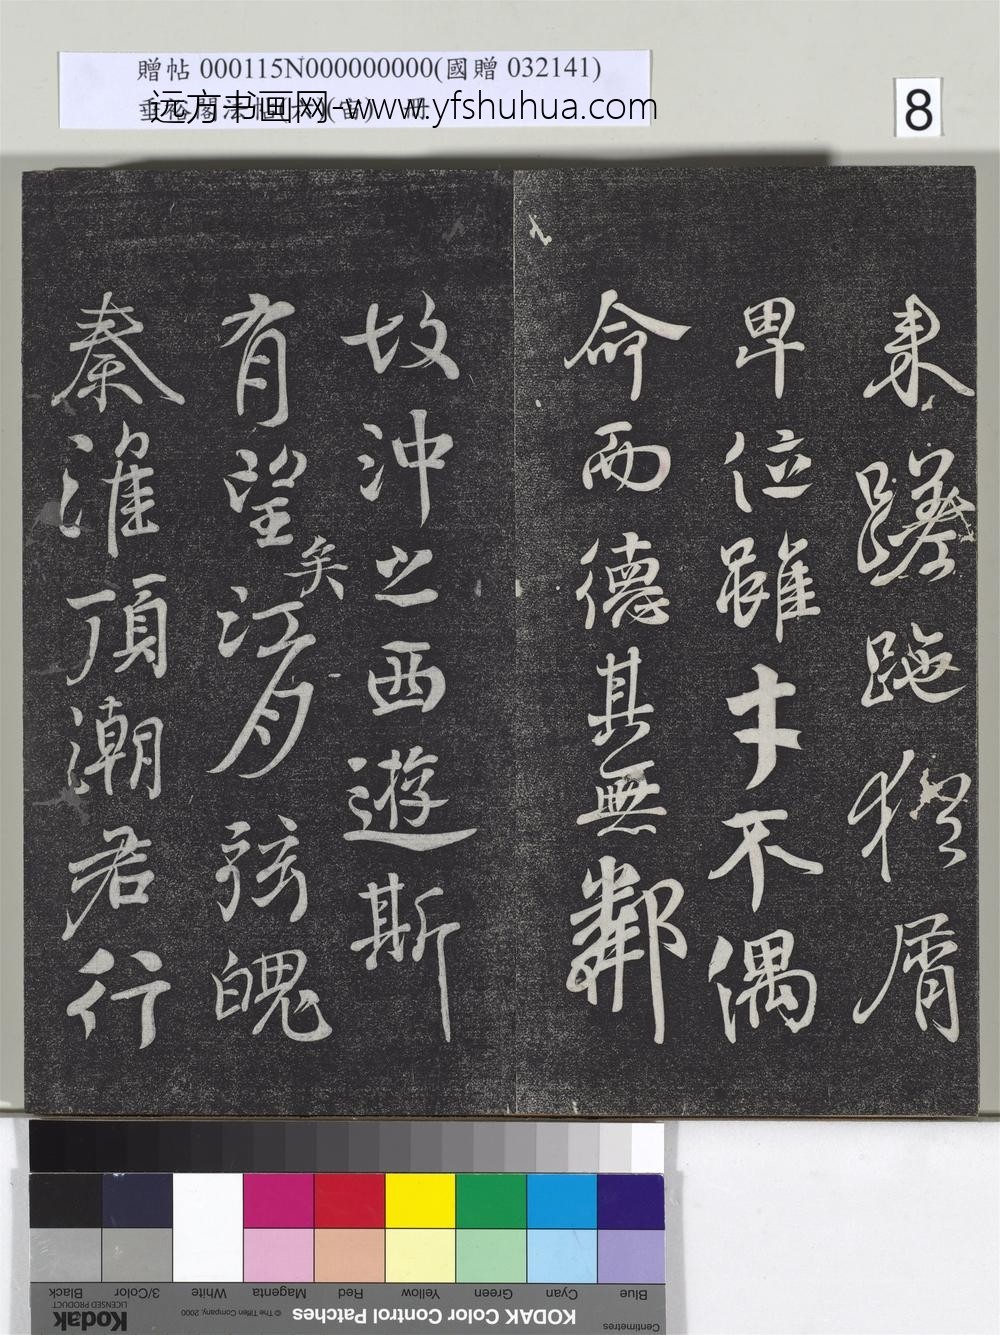 贈帖 000115N000000000(國贈 032141)
远方书画网-www.yfshuhua.com
8
来蹉跎猶屑
卑位雖才不偶
命而德其無鄰
故沖之西遊斯
有望矣江月弦魄
秦淮頂潮君行
Blue
Cyan
Green
Yellow
Red
Magenta
White
3/Color
Black
Centimetres
KODAK Color Control Patches
© The Tiffen Company, 2000
Kodak
LICENSED PRODUCT